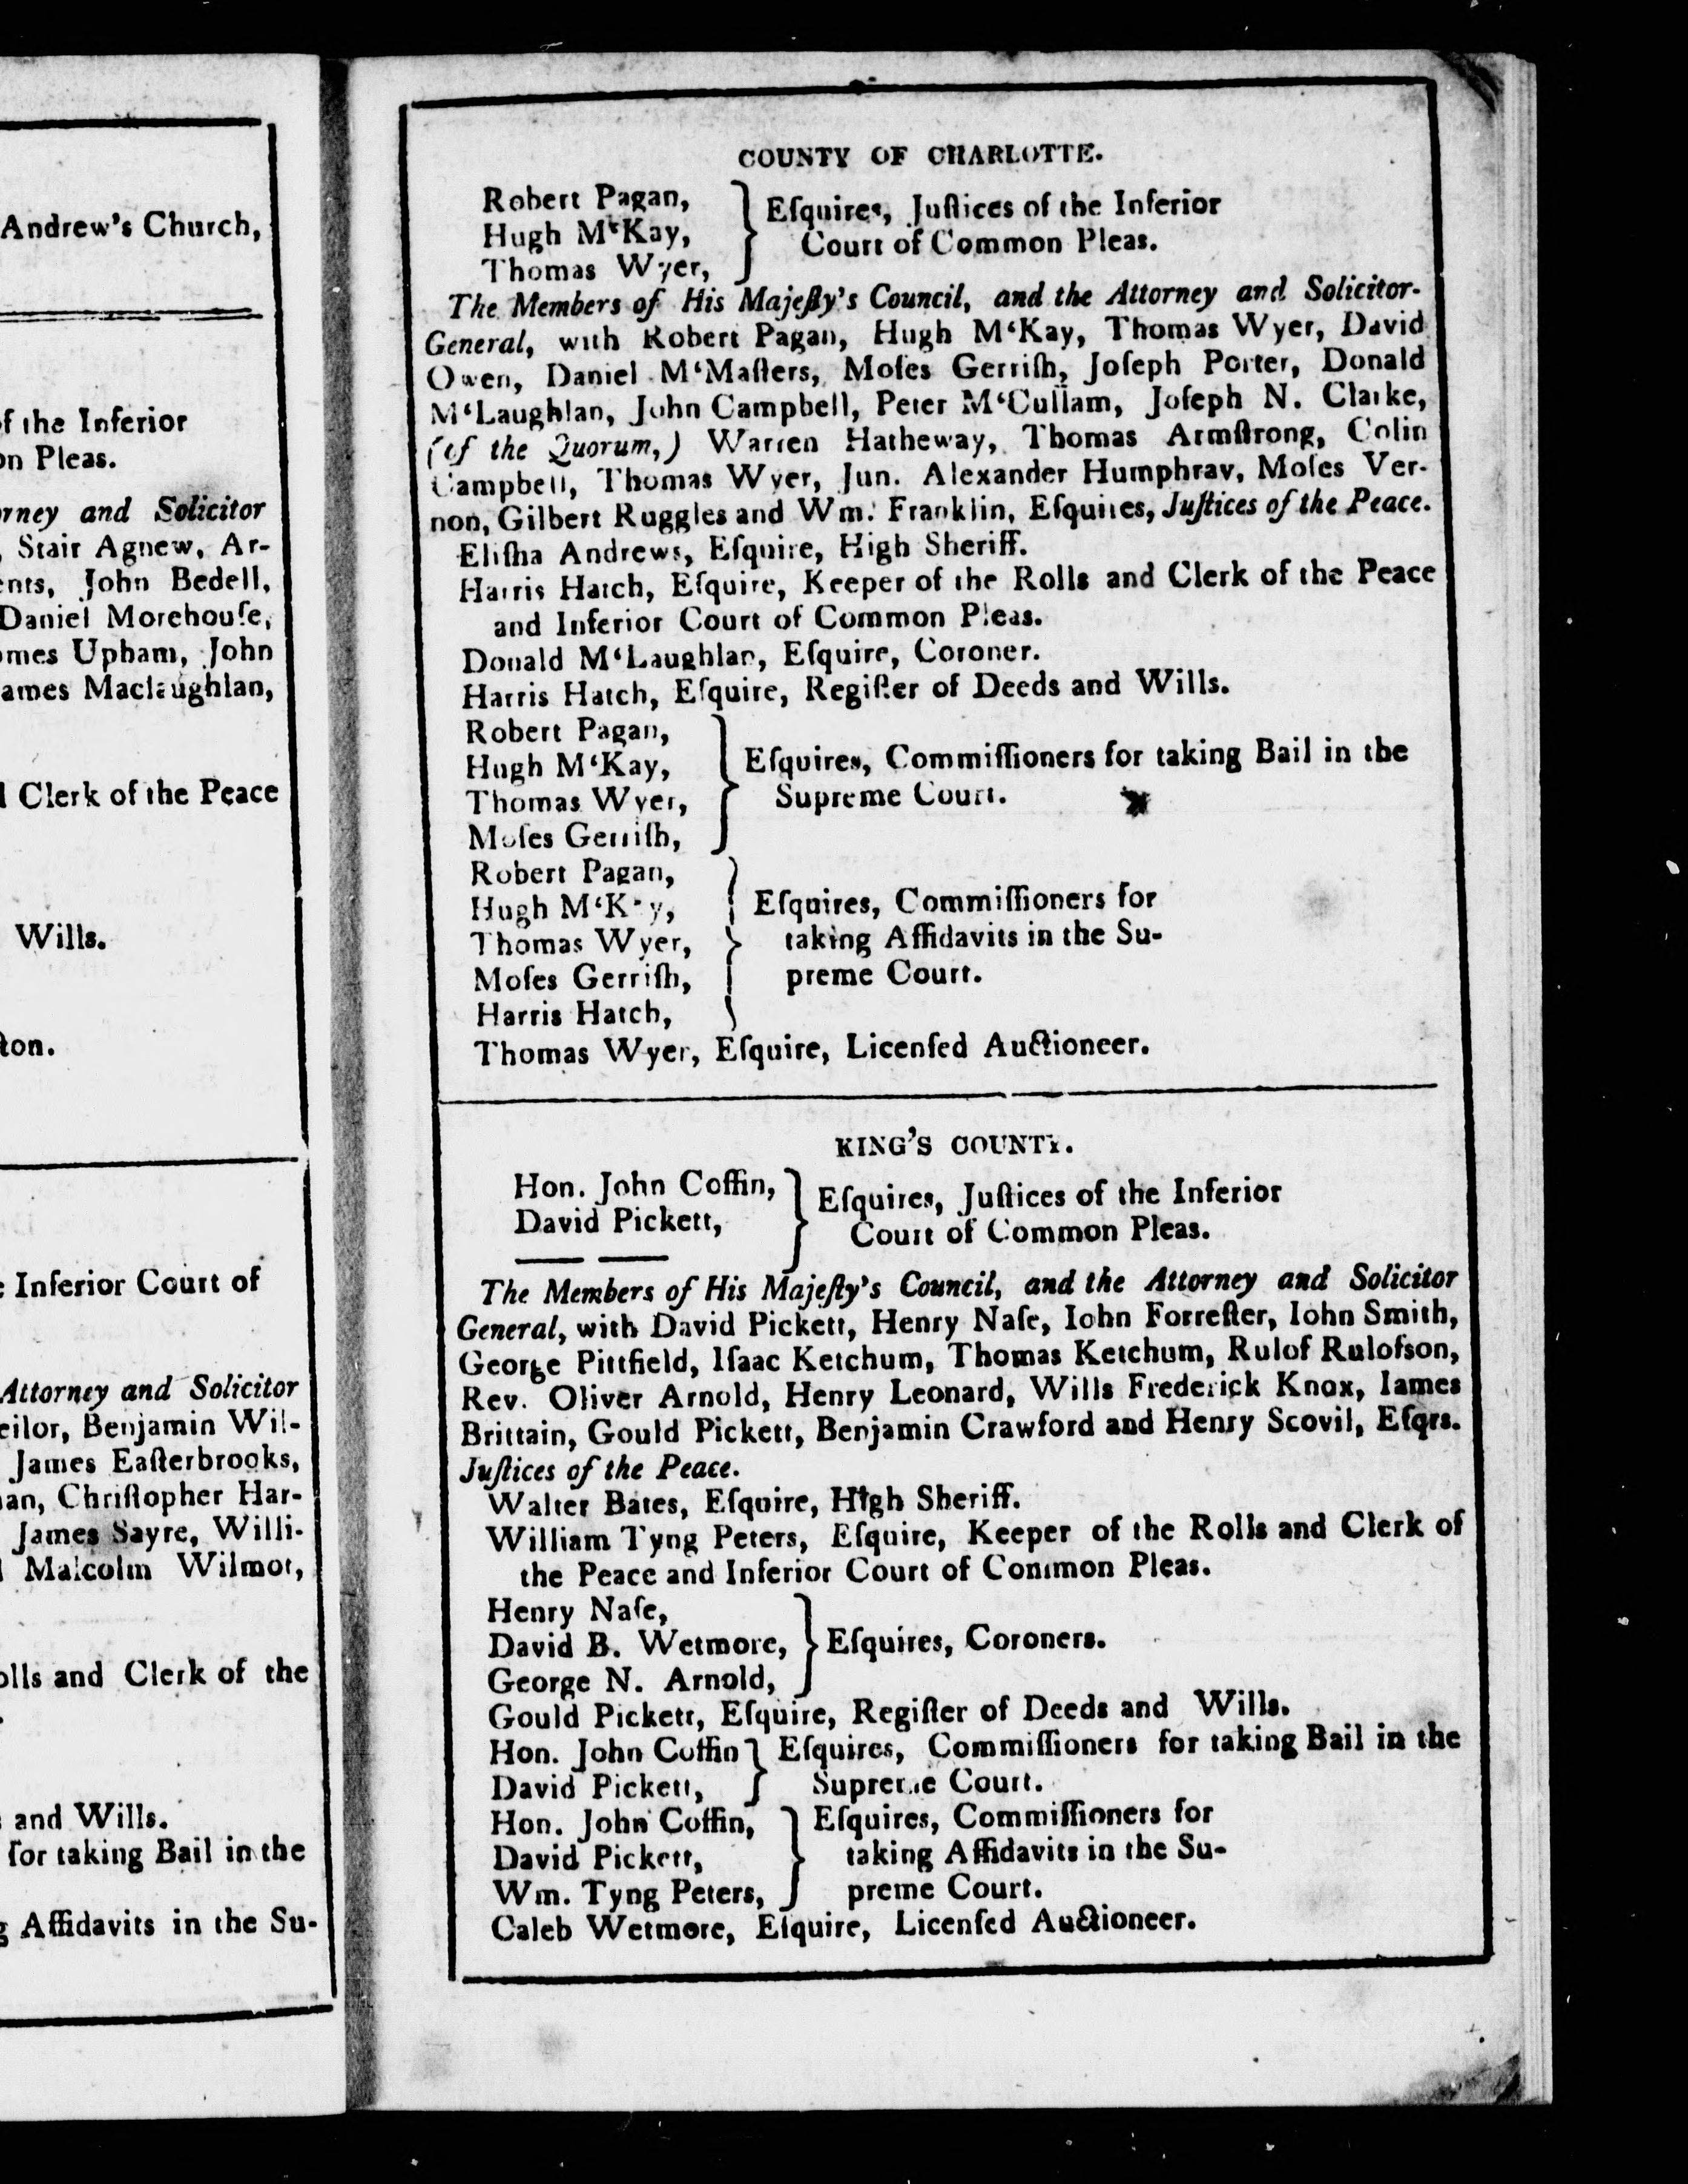 Andrew's Church,
f the Inferior
on Pleas.
rney and Solicitor
, Stair Agnew, Ar-
ents, John Bedell,
Daniel Morehouſe,
omes Upham, John
ames Maclaughlan,
l Clerk of the Peace
Wills.
ton.
Inferior Court of
Attorney and Solicitor
eilor, Benjamin Wil-
James Eaſterbrooks,
an, Chriſtopher Har-
James Sayre, Willi-
Malcolm Wilmot,
olls and Clerk of the
and Wills.
for taking Bail in the
g Affidavits in the Su-
COUNTY OF CHARLOTTE.
Robert Pagan,
Hugh M'Kay,
Thomas Wyer,
} Eſquires, Juſtices of the Inferior
Court of Common Pleas.
The Members of His Majeſty's Council, and the Attorney and Solicitor-
General, with Robert Pagan, Hugh M'Kay, Thomas Wyer, David
Owen, Daniel M'Maſters, Moſes Gerriſh, Joſeph Porter, Donald
M'Laughlan, John Campbell, Peter M'Cullam, Joſeph N. Clarke,
(of the Quorum,) Warren Hatheway, Thomas Armſtrong, Colin
Campbell, Thomas Wyer, Jun. Alexander Humphray, Moſes Ver-
non, Gilbert Ruggles and Wm. Franklin, Eſquires, Juſtices of the Peace.
Eliſha Andrews, Eſquire, High Sheriff.
Harris Hatch, Eſquire, Keeper of the Rolls and Clerk of the Peace
and Inferior Court of Common Pleas.
Donald M'Laughlan, Eſquire, Coroner.
Harris Hatch, Eſquire, Regiſter of Deeds and Wills.
Robert Pagan,
Hugh M'Kay,
Thomas Wyer,
Moſes Gerriſh,
} Eſquires, Commiſſioners for taking Bail in the
Supreme Court.
Robert Pagan,
Hugh M'Kay,
Thomas Wyer,
Moſes Gerriſh,
Harris Hatch,
} Eſquires, Commiſſioners for
taking Affidavits in the Su-
preme Court.
Thomas Wyer, Eſquire, Licenſed Auctioneer.
KING'S COUNTY.
Hon. John Coffin,
David Pickett,
} Eſquires, Juſtices of the Inferior
Court of Common Pleas.
The Members of His Majeſty's Council, and the Attorney and Solicitor
General, with David Pickett, Henry Naſe, Iohn Forreſter, Iohn Smith,
George Pittfield, Iſaac Ketchum, Thomas Ketchum, Rulof Rulofson,
Rev. Oliver Arnold, Henry Leonard, Wills Frederick Knox, Iames
Brittain, Gould Pickett, Benjamin Crawford and Henry Scovil, Eſqrs.
Juſtices of the Peace.
Walter Bates, Eſquire, High Sheriff.
William Tyng Peters, Eſquire, Keeper of the Rolls and Clerk of
the Peace and Inferior Court of Common Pleas.
Henry Naſe,
David B. Wetmore,
George N. Arnold,
} Eſquires, Coroners.
Gould Pickett, Eſquire, Regiſter of Deeds and Wills.
Hon. John Coffin
David Pickett,
} Eſquires, Commiſſioners for taking Bail in the
Supreme Court.
Hon. John Coffin,
David Pickett,
Wm. Tyng Peters,
} Eſquires, Commiſſioners for
taking Affidavits in the Su-
preme Court.
Caleb Wetmore, Eſquire, Licenſed Auctioneer.